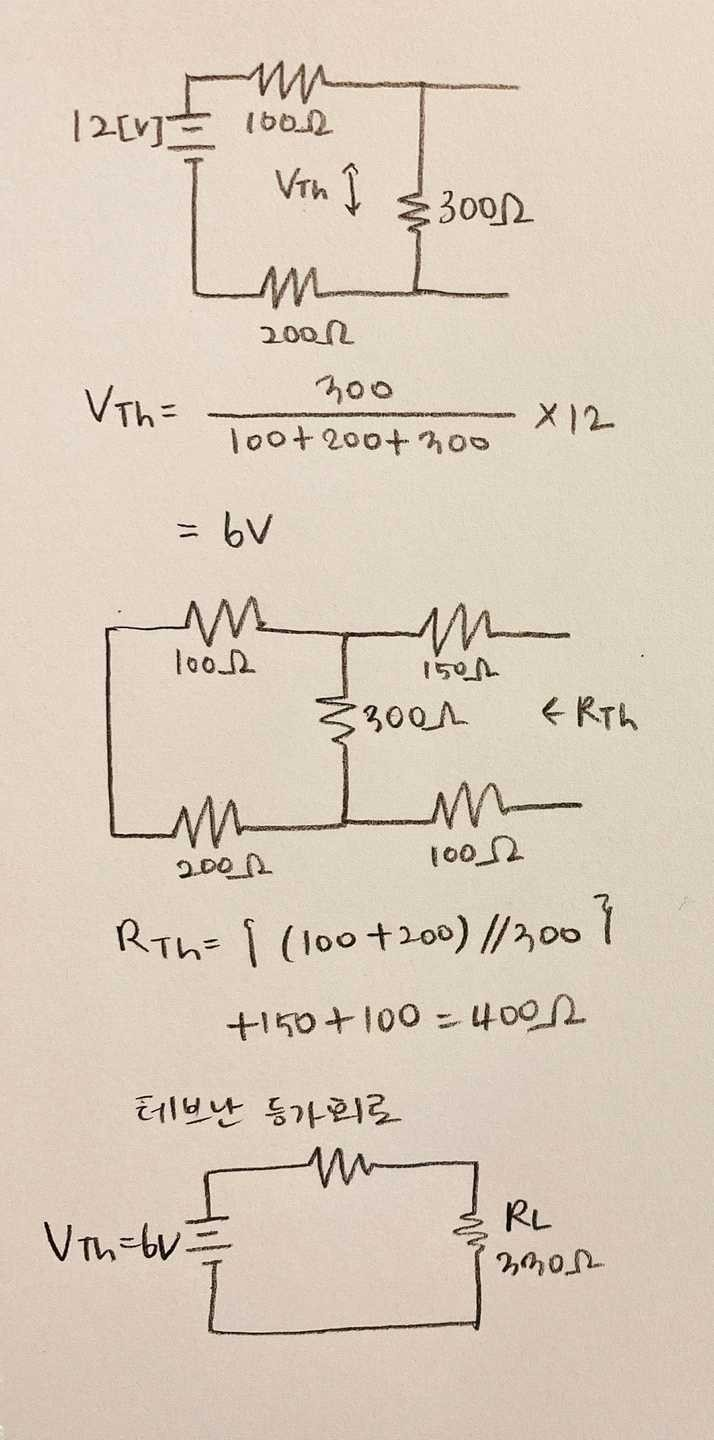 12[V]
100Ω
VTh ↕
300Ω
200Ω
VTh = 300 / 100+200+300 ×12
= 6V
100Ω
150Ω
300Ω
← RTh
200Ω
100Ω
RTh = { (100+200)//300 }
+150+100 = 400Ω
테브난 등가회로
VTh=6V
RL
330Ω